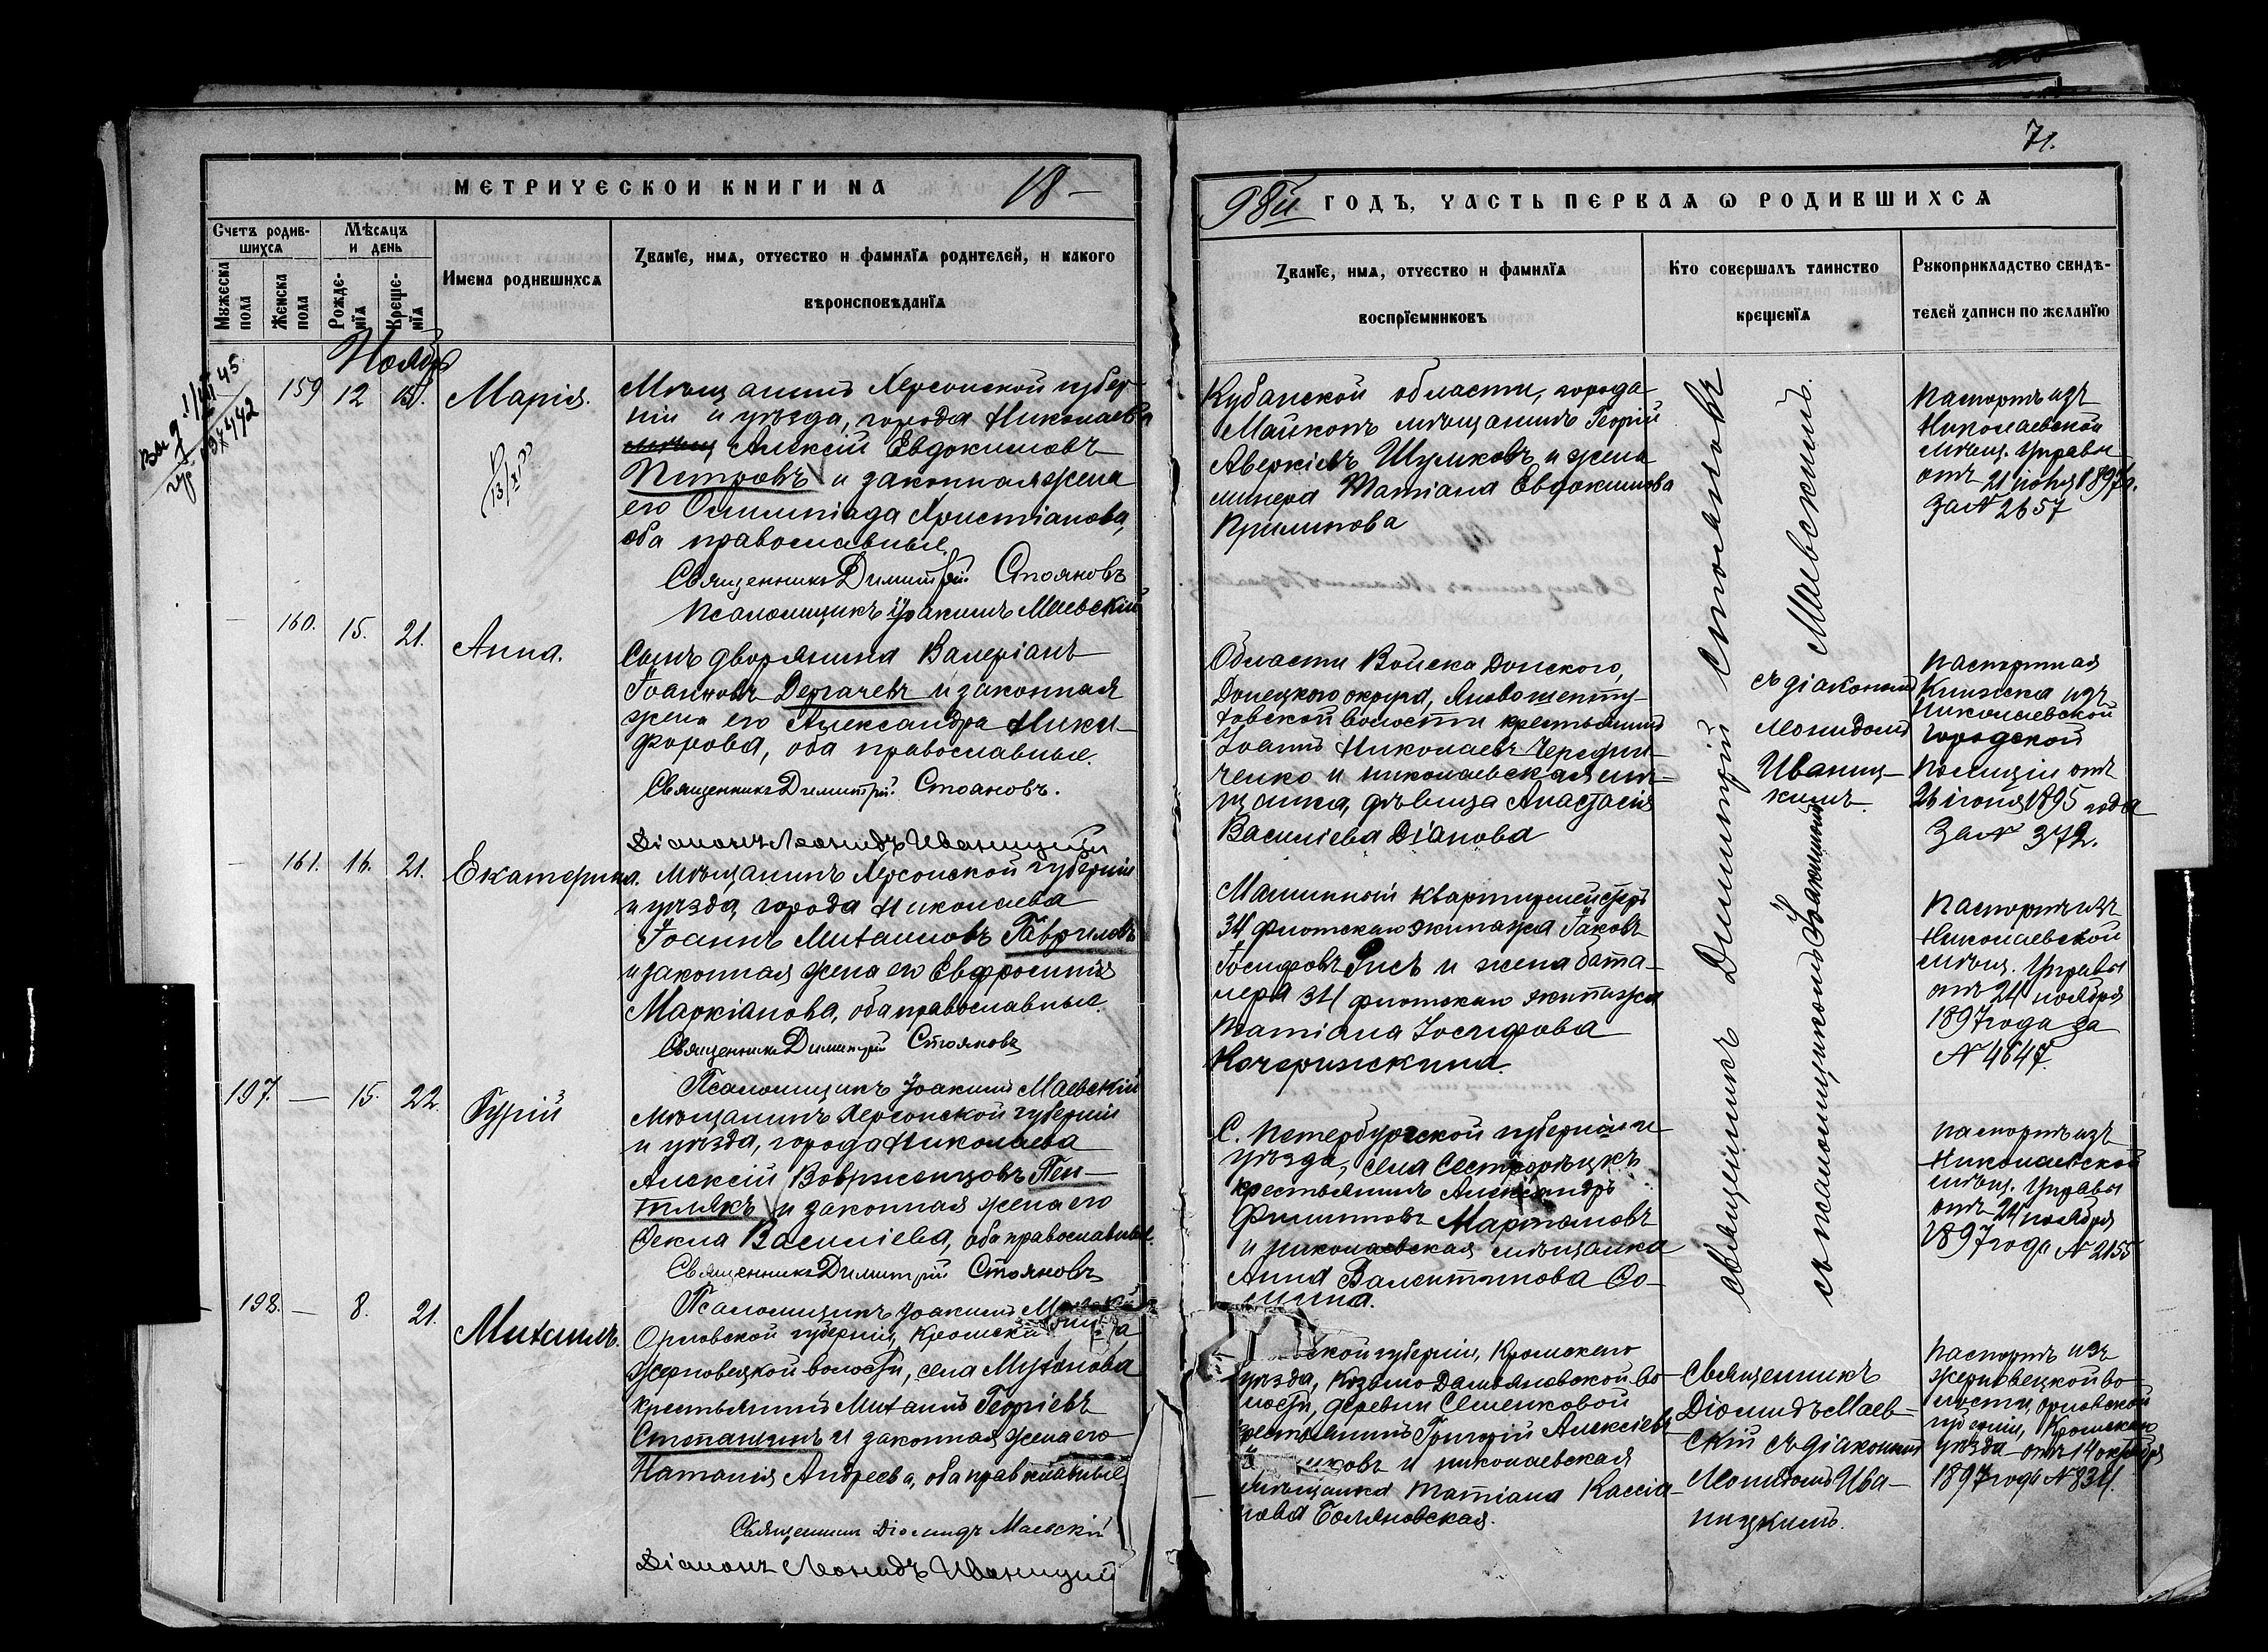 71.
МЕТРИЧЕСКОЙ КНИГИ НА 18—
98й ГОДЪ, ЧАСТЬ ПЕРВАЯ Ѡ РОДИВШИХСЯ
Счетъ родив-
шихся
Мѣсяцъ
и день
Мужеска
пола
Женска
пола
Рожде-
нїя
Креще-
нїя
Имена родившихся
Званїе, имя, отчество и фамилїя родителей, и какого
вѣроисповѣданїя
Званїе, имя, отчество и фамилїя
воспрїемниковъ
Кто совершалъ таинство
крещенїя
Рукоприкладство свидѣ-
телей записи по желанїю
Ноябрь
159 12 Марія.
Мѣщанинъ Херсонской губер-
ніи и уѣзда, города Николаева
Алексій Евдокимовъ
Петровъ и законная жена
его Олимпіада Христіанова,
оба православные.
Священникъ Димитрій Стояновъ
Псаломщикъ Іоакимъ Маевскій
Кубанской области, города
Майкопъ мѣщанинъ Георгій
Аверкіевъ Шумковъ и жена
минера Татіана Евдокимова
Паспортъ изъ
Николаевской
мѣщ. Управы
отъ 21 1897 г.
за № 2657
160. 15. 21. Анна.
Сынъ дворянина Валеріанъ
Іоанновъ Дергачевъ и законная
жена его Александра Ники-
форова, оба православные.
Священникъ Димитрій Стояновъ.
Діаконъ Леонидъ Иваницкій
Области Войска Донского,
Донецкаго округа,
волости крестьянинъ
Іоаннъ Николаевъ Чередни-
ченко и николаевская мѣ-
щанка, дѣвица Анастасія
Василіева Діанова
Священникъ Димитрій Стояновъ
съ псаломщикомъ Іоакимомъ Маевскимъ.
съ діакономъ
Леонидомъ
Иваниц-
кимъ.
Паспортная
Книжка изъ
Николаевской
городской
Полиціи отъ
26 іюня 1895 года
За № 372.
161. 16. 21. Екатерина.
Мѣщанинъ Херсонской губерніи
и уѣзда, города Николаева
Іоаннъ Михаиловъ Гавриловъ
и законная жена его Евфросинія
Маркіанова, оба православные.
Священникъ Димитрій Стояновъ
Псаломщикъ Іоакимъ Маевскій
Машинный квартирмейстеръ
34 флотскаго экипажа Іаковъ
Іосифовъ Рисъ и жена бата-
лера 34 флотскаго экипажа
Татіана Іосифова
Кочерижкина.
Паспортъ изъ
Николаевской
мѣщ. Управы
отъ 24 ноября
1897 года за
№ 4647.
197. — 15. 22. Гурій
Мѣщанинъ Херсонской губерніи
и уѣзда, города Николаева
Алексій Пен-
тлякъ и законная жена его
Ѳекла Василіева, оба православные.
Священникъ Димитрій Стояновъ
Псаломщикъ Іоакимъ
С. Петербургской губерніи и
уѣзда, села Сестрорѣцкъ
крестьянинъ Александръ
Филипповъ Мартановъ
и николаевская мѣщанка
Анна Валентинова Ѳо-
мина.
Паспортъ изъ
Николаевской
мѣщ. Управы
отъ 24 ноября
1897 года № 2155
198. — 8. 21. Михаилъ.
Орловской губерніи, Кромск
Жерновецкой волости, села Муханова
крестьянинъ Михаилъ Георгіевъ
Степашинъ и законная жена его
Наталія Андреева, оба православные.
Священникъ Діомидъ Маевскій
Діаконъ Леонидъ Иваницкій
ской губерніи, Кромскаго
уѣзда, Козьмо-Дамьяновской во-
лости, деревни Семенковой
крестьянинъ Григорій Алексіевъ
иковъ и николаевская
мѣщанка Татіана Кассіа-
нова Боляновская.
Священникъ
Діомидъ Маев-
скій съ діакономъ
Леонидомъ Ива-
ницкимъ.
Паспортъ изъ
Жерновецкой во-
лости, Орловской
губерніи, Кромскаго
уѣзда отъ 14 октября
1897 года № 834.